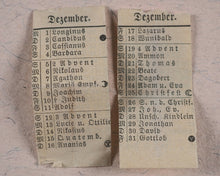 Dezember.
M 1 Longinus
D 2 Candidus
F 3 Cassianus
S 4 Barbara
S 5 2 Advent
M 6 Nikolaus
D 7 Agathon
M 8 Mariä Empf.
D 9 Joachim
F 10 Judith
S 11
S 12 3 Advent
M 13 Lucia u. Ottilie
D 14 Nikasius
M 15 Quatemb.
D 16 Ananias
Dezember.
F 17 Lazarus
S 18 Wunibald
S 19 4 Advent
M 20 Ammon
D 21 Thomas
M 22 Beate
D 23 Dagobert
F 24 Adam Eva
S 25 Christfest
S 26 S. n. d. Christf.
M 27 Joh. Ev.
D 28 Unsch. Kindlein
M 29 Jonathan
D 30 David
F 31 Gottlob